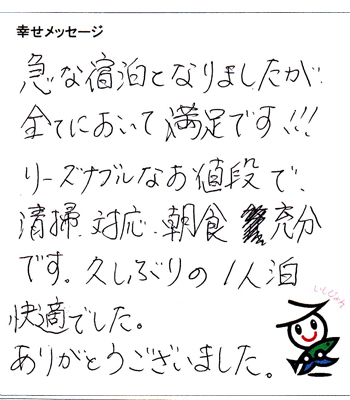 幸せメッセージ
急な宿泊となりましたが
全てにおいて満足です!!!
リーズナブルなお値段で、
清掃.対応.朝食 充分
です。久しぶりの1人泊
快適でした。
ありがとうございました。